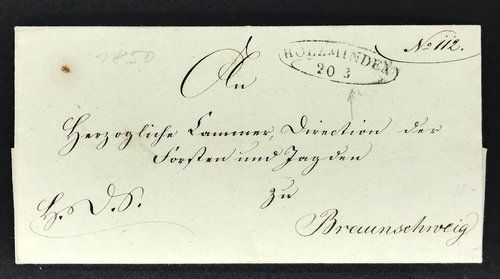 1850
No 112.
HOLZMINDEN
20 3
An
Herzogliche Cammer, Direction der
Forsten und Jagden
zu
H. D. S.
Braunschweig